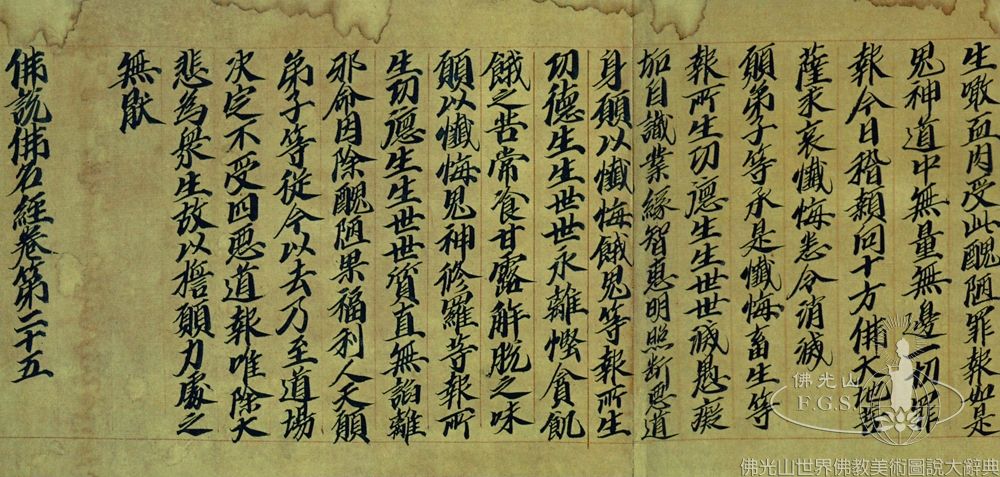 生噉血肉受此醜陋罪報如是
鬼神道中無量無邊一切罪
報今日稽顙向十方佛大地菩
薩求哀懺悔悉令消滅
願弟子等承是懺悔畜生等
報所生功德生生世世滅愚癡
垢自識業緣智惠明照斷惡道
身願以懺悔餓鬼等報所生
功德生生世世永離慳貪飢
餓之苦常食甘露解脫之味
願以懺悔鬼神修羅等報所
生功德生生世世質直無諂離
邪命因除醜陋果福利人天願
弟子等從今以去乃至道場
決定不受四惡道報唯除大
悲為衆生故以誓願力處之
無猒
佛說佛名經卷第二十五
佛光山
F.G.S.
佛光山世界佛教美術圖說大辭典